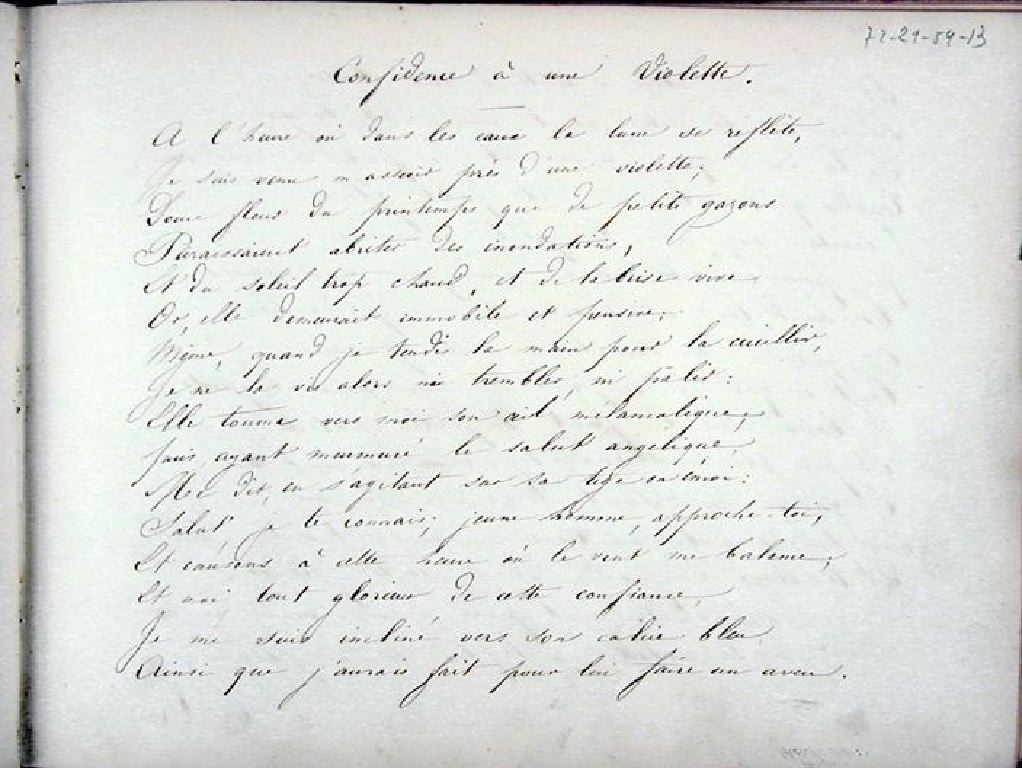 72-21-59-13
Confidence à une Violette.
A l'heure où dans les eaux la lune se reflète,
Je suis venu m'assoir près d'une violette;
Douce fleur du printemps que de petits gazons
Paraissaient abriter des inondations,
Et du soleil trop chaud, et de la brise vive
Or, elle demeurait immobile et pensive,
Même, quand je tendis la main pour la cueillir,
Je ne la vis alors ni trembler, ni pâlir:
Elle tourna vers moi son œil mélancolique,
puis, ayant murmuré le salut angélique,
Me dit, en s'agitant sur sa tige en émoi:
Salut, je te connais; jeune homme, approche-toi,
Et causons à cette heure où le vent me balance;
Et moi, tout glorieux de cette confiance,
Je me suis incliné vers son calice bleu
Ainsi que j'aurais fait pour lui faire un aveu.